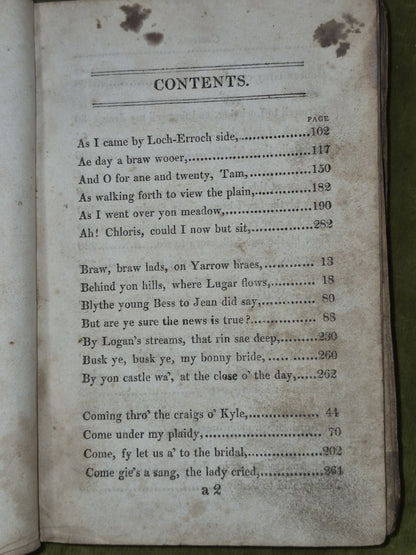 CONTENTS.
PAGE
As I came by Loch-Erroch side,................102
Ae day a braw wooer,............................117
And O for ane and twenty, Tam,................150
As walking forth to view the plain,..............182
As I went over yon meadow,......................190
Ah! Chloris, could I now but sit,................282
Braw, braw lads, on Yarrow braes,............ 13
Behind yon hills, where Lugar flows,.......... 18
Blythe young Bess to Jean did say,............ 80
But are ye sure the news is true?.............. 88
By Logan's streams, that rin sae deep,..........230
Busk ye, busk ye, my bonny bride, ............260
By yon castle wa', at the close o' the day,.....262
Coming thro' the craigs o' Kyle,................ 44
Come under my plaidy,.......................... 70
Come, fy let us a' to the bridal,................202
Come gie's a sang, the lady cried,..............264
a 2